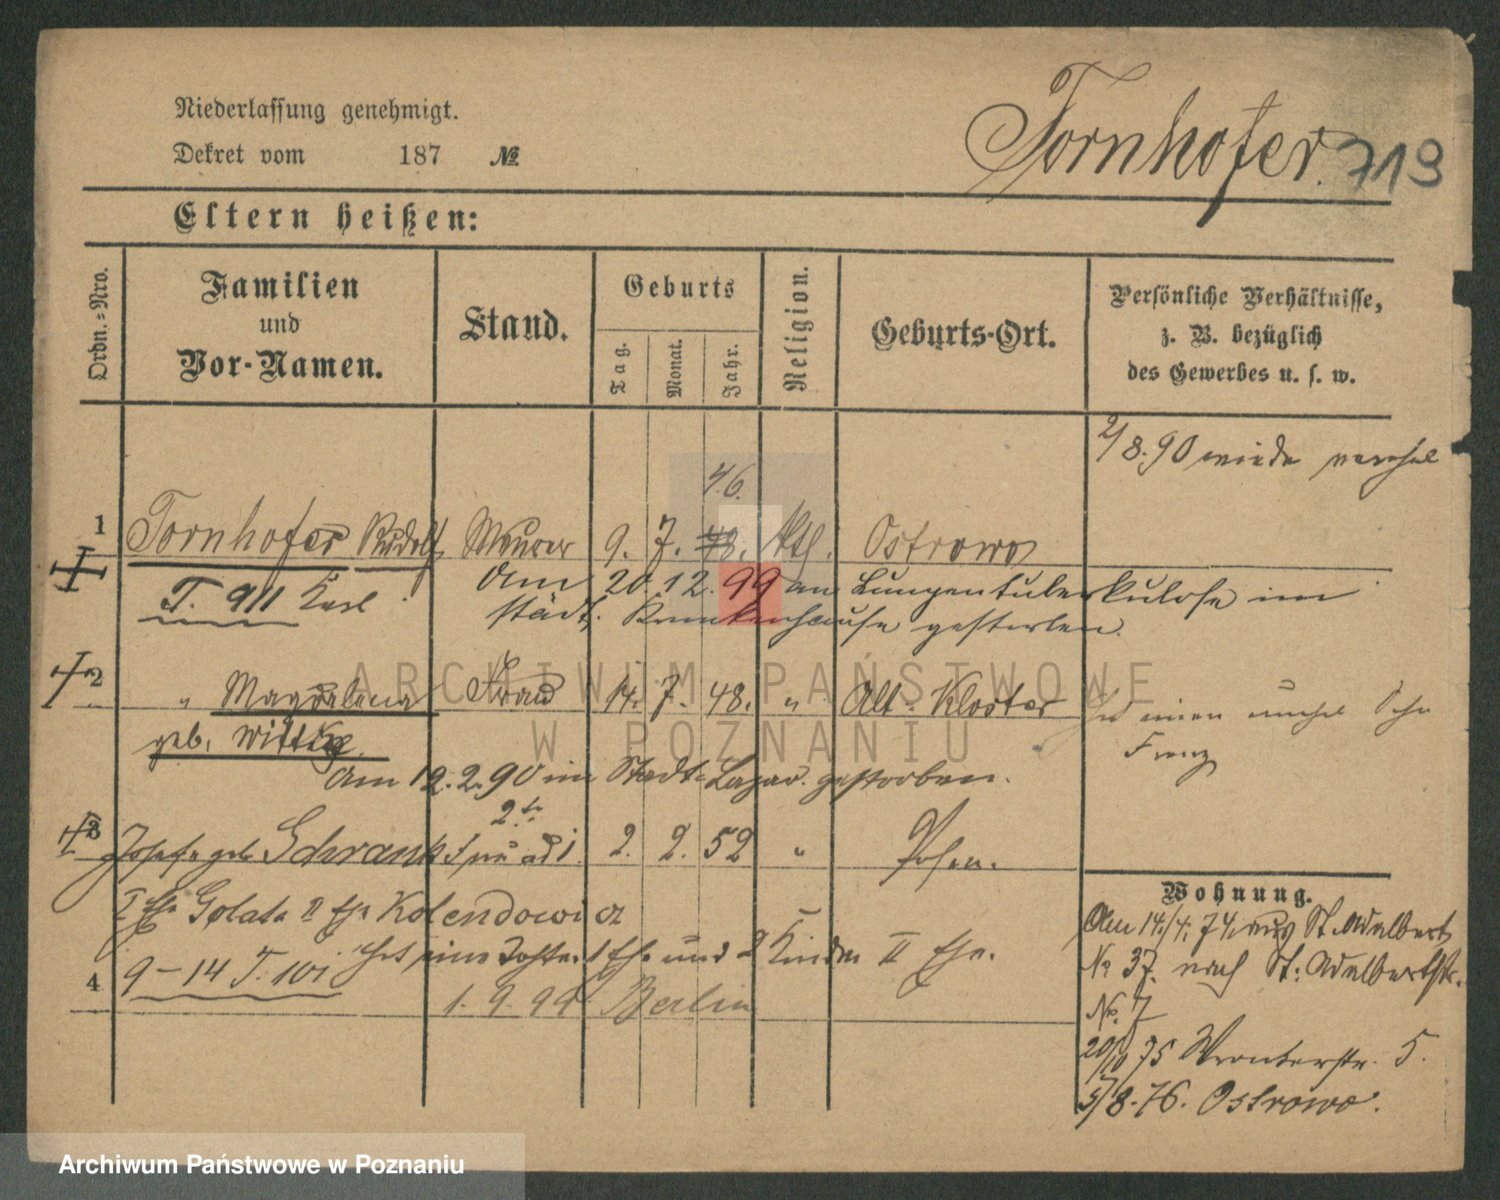 Niederlassung genehmigt.
Dekret vom 187 №
Tornhofer. 719
Eltern heißen:
Ordn.=Nro.
Familien
und
Vor-Namen.
Stand.
Geburts
Tag.
Monat.
Jahr.
Religion.
Geburts-Ort.
Persönliche Verhältnisse,
z. B. bezüglich
des Gewerbes u. s. w.
2/8.90 wieder
46.
1 Tornhofer Rudolf Maurer 9. 7. 48. Ktl. Ostrowo
T. 911 Karl
Am 20.12.99 an Lungentuberkulose im
städt. Krankenhause gestorben.
2 " Magdalena Frau 14. 7. 48. " Alt-Kloster
geb. Wittke
Franz
Am 12.2.90 im Stadt-Lazar. gestorben.
2te
3 Josefa geb. Schrank Frau ad 1 2. 2. 52 " Posen.
I Ehe Golata II Ehe Kolendowicz
Hat eine Tochter I Ehe und 2 Kinder II Ehe.
4 9-14 T. 101
1. 9. 99 Berlin
Wohnung.
Am 14/4. 74 aus St. Adalbert
№ 37. nach St. Adalbertstr.
№. 7
20/10 75 Wronkerstr. 5.
5/8.76. Ostrowo.
ARCHIWUM PAŃSTWOWE
W POZNANIU
Archiwum Państwowe w Poznaniu